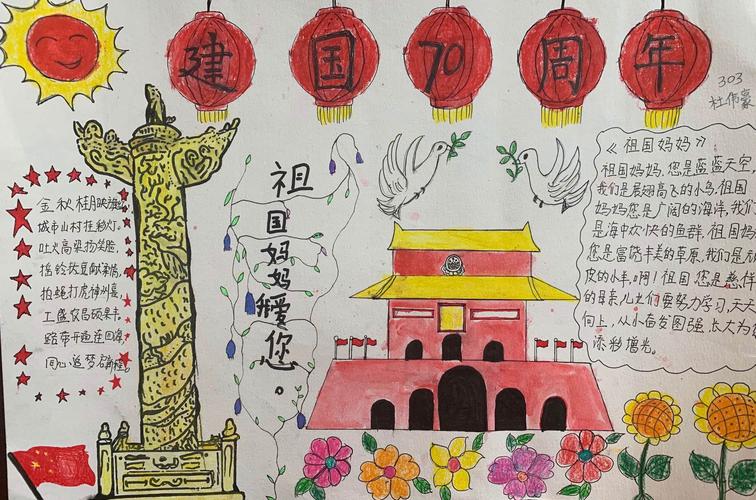 建国70周年
303
杜伟豪
金秋桂月映旗红
城市山村挂彩灯。
吐火高架扬笑脸,
拍蝇打虎神州喜,
工盛农昌硕果丰。
同心追梦
祖国妈妈我爱您。
《祖国妈妈》
祖国妈妈,您是蓝蓝天空,
我们是展翅高飞的小鸟,祖国
妈妈您是广阔的海洋,我们
是海中欢快的鱼群,祖国妈
您是富饶丰美的草原,我们是
皮的小羊,啊!祖国您是慈祥
的母亲,儿女们要努力学习,天天
向上,从小奋发图强,长大为
添彩增光。